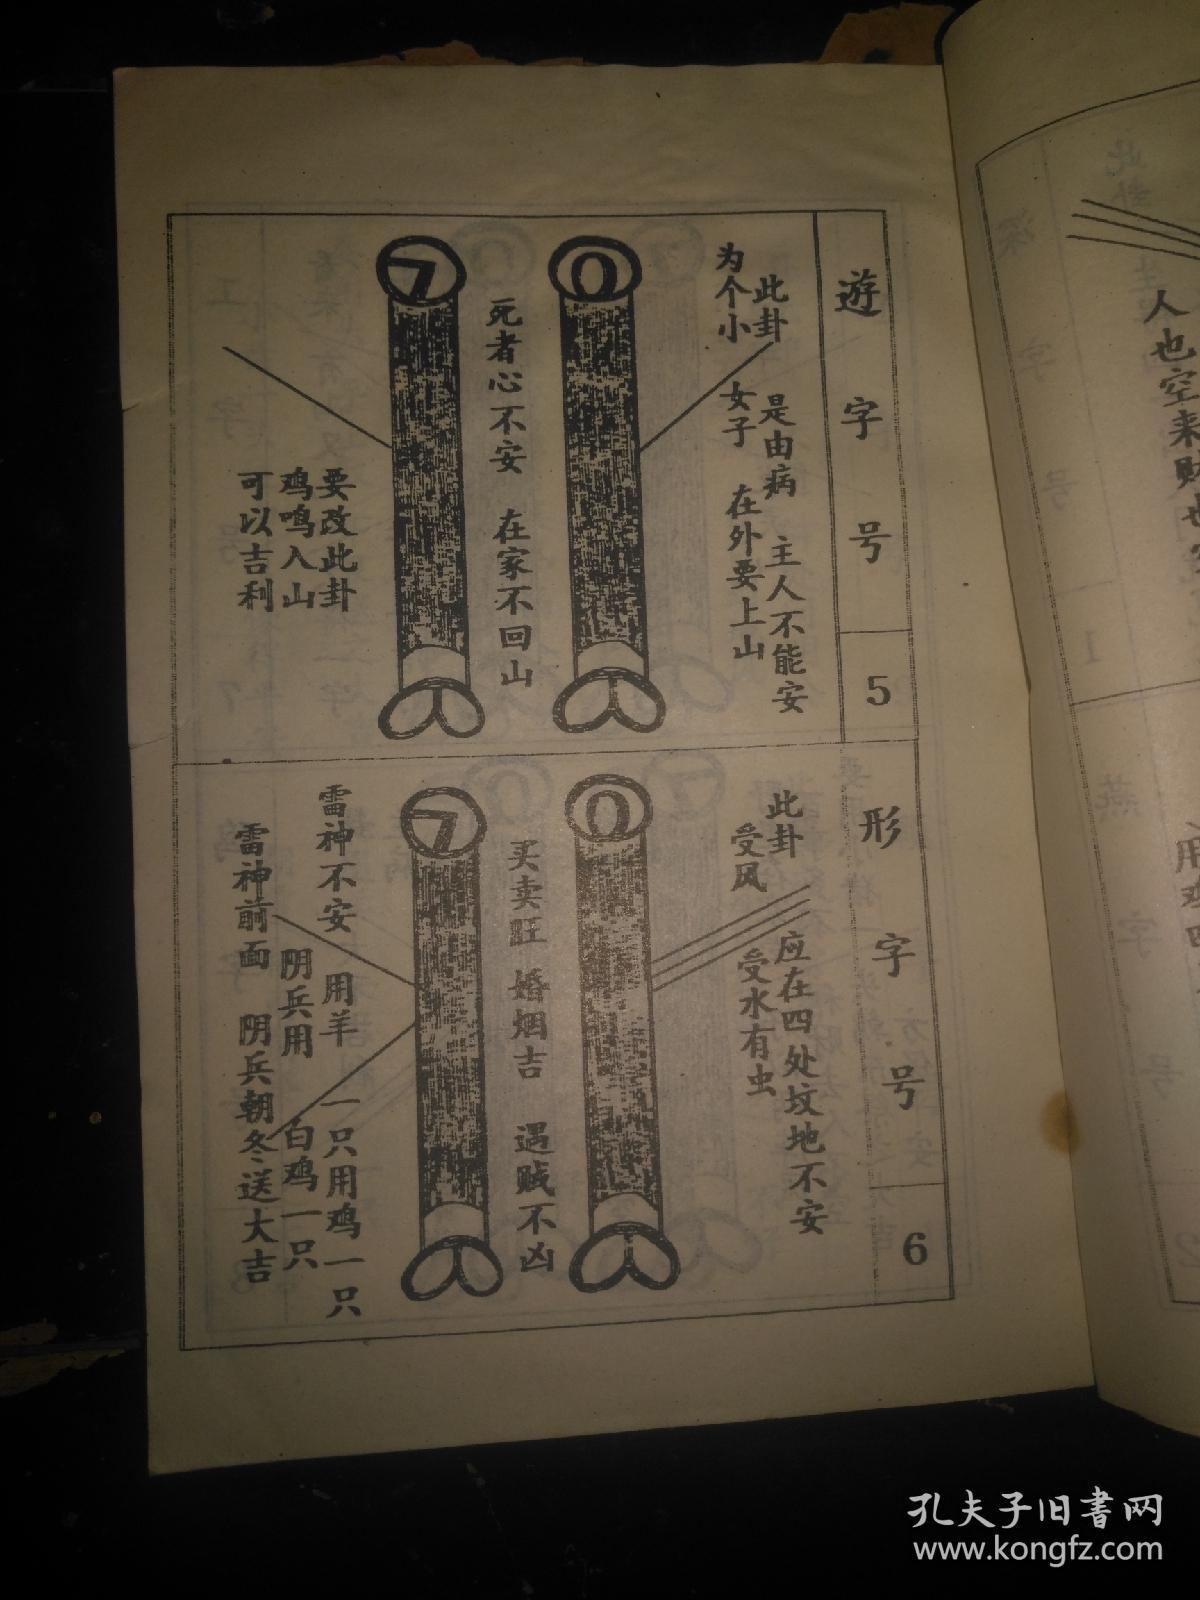 遊字号
5
此卦 是由病 主人不能安
为个小 女子 在外要上山
0
死者心不安 在家不回山
7
要改此卦
鸡鸣入山
可以吉利
形字号
6
此卦 应在四处坟地不安
受风 受水有虫
0
买卖旺 婚烟吉 遇贼不凶
7
雷神不安 用羊一只用鸡一只
阴兵用 白鸡一只
雷神前面 阴兵朝冬送大吉
深字号
1
人也空来财也
燕字号
2
孔夫子旧书网
www.kongfz.com